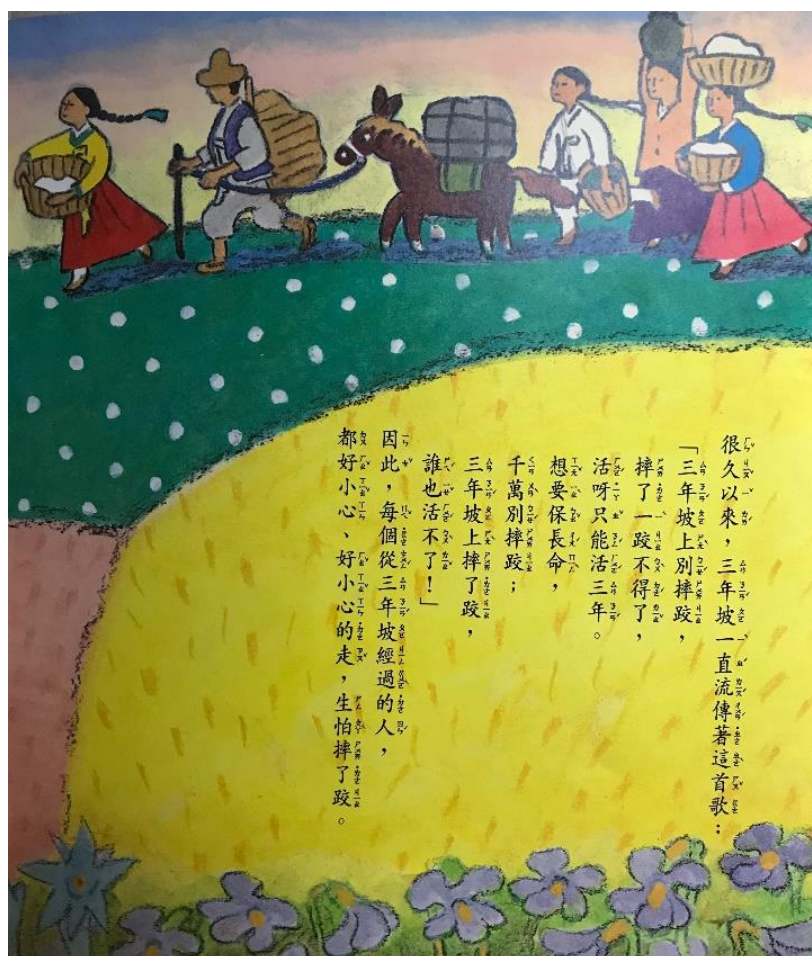 很久以來，三年坡一直流傳著這首歌：
「三年坡上別摔跤，
摔了一跤不得了，
活呀只能活三年。
想要保長命，
千萬別摔跤；
三年坡上摔了跤，
誰也活不了！」
因此，每個從三年坡經過的人，
都好小心、好小心的走，生怕摔了跤。